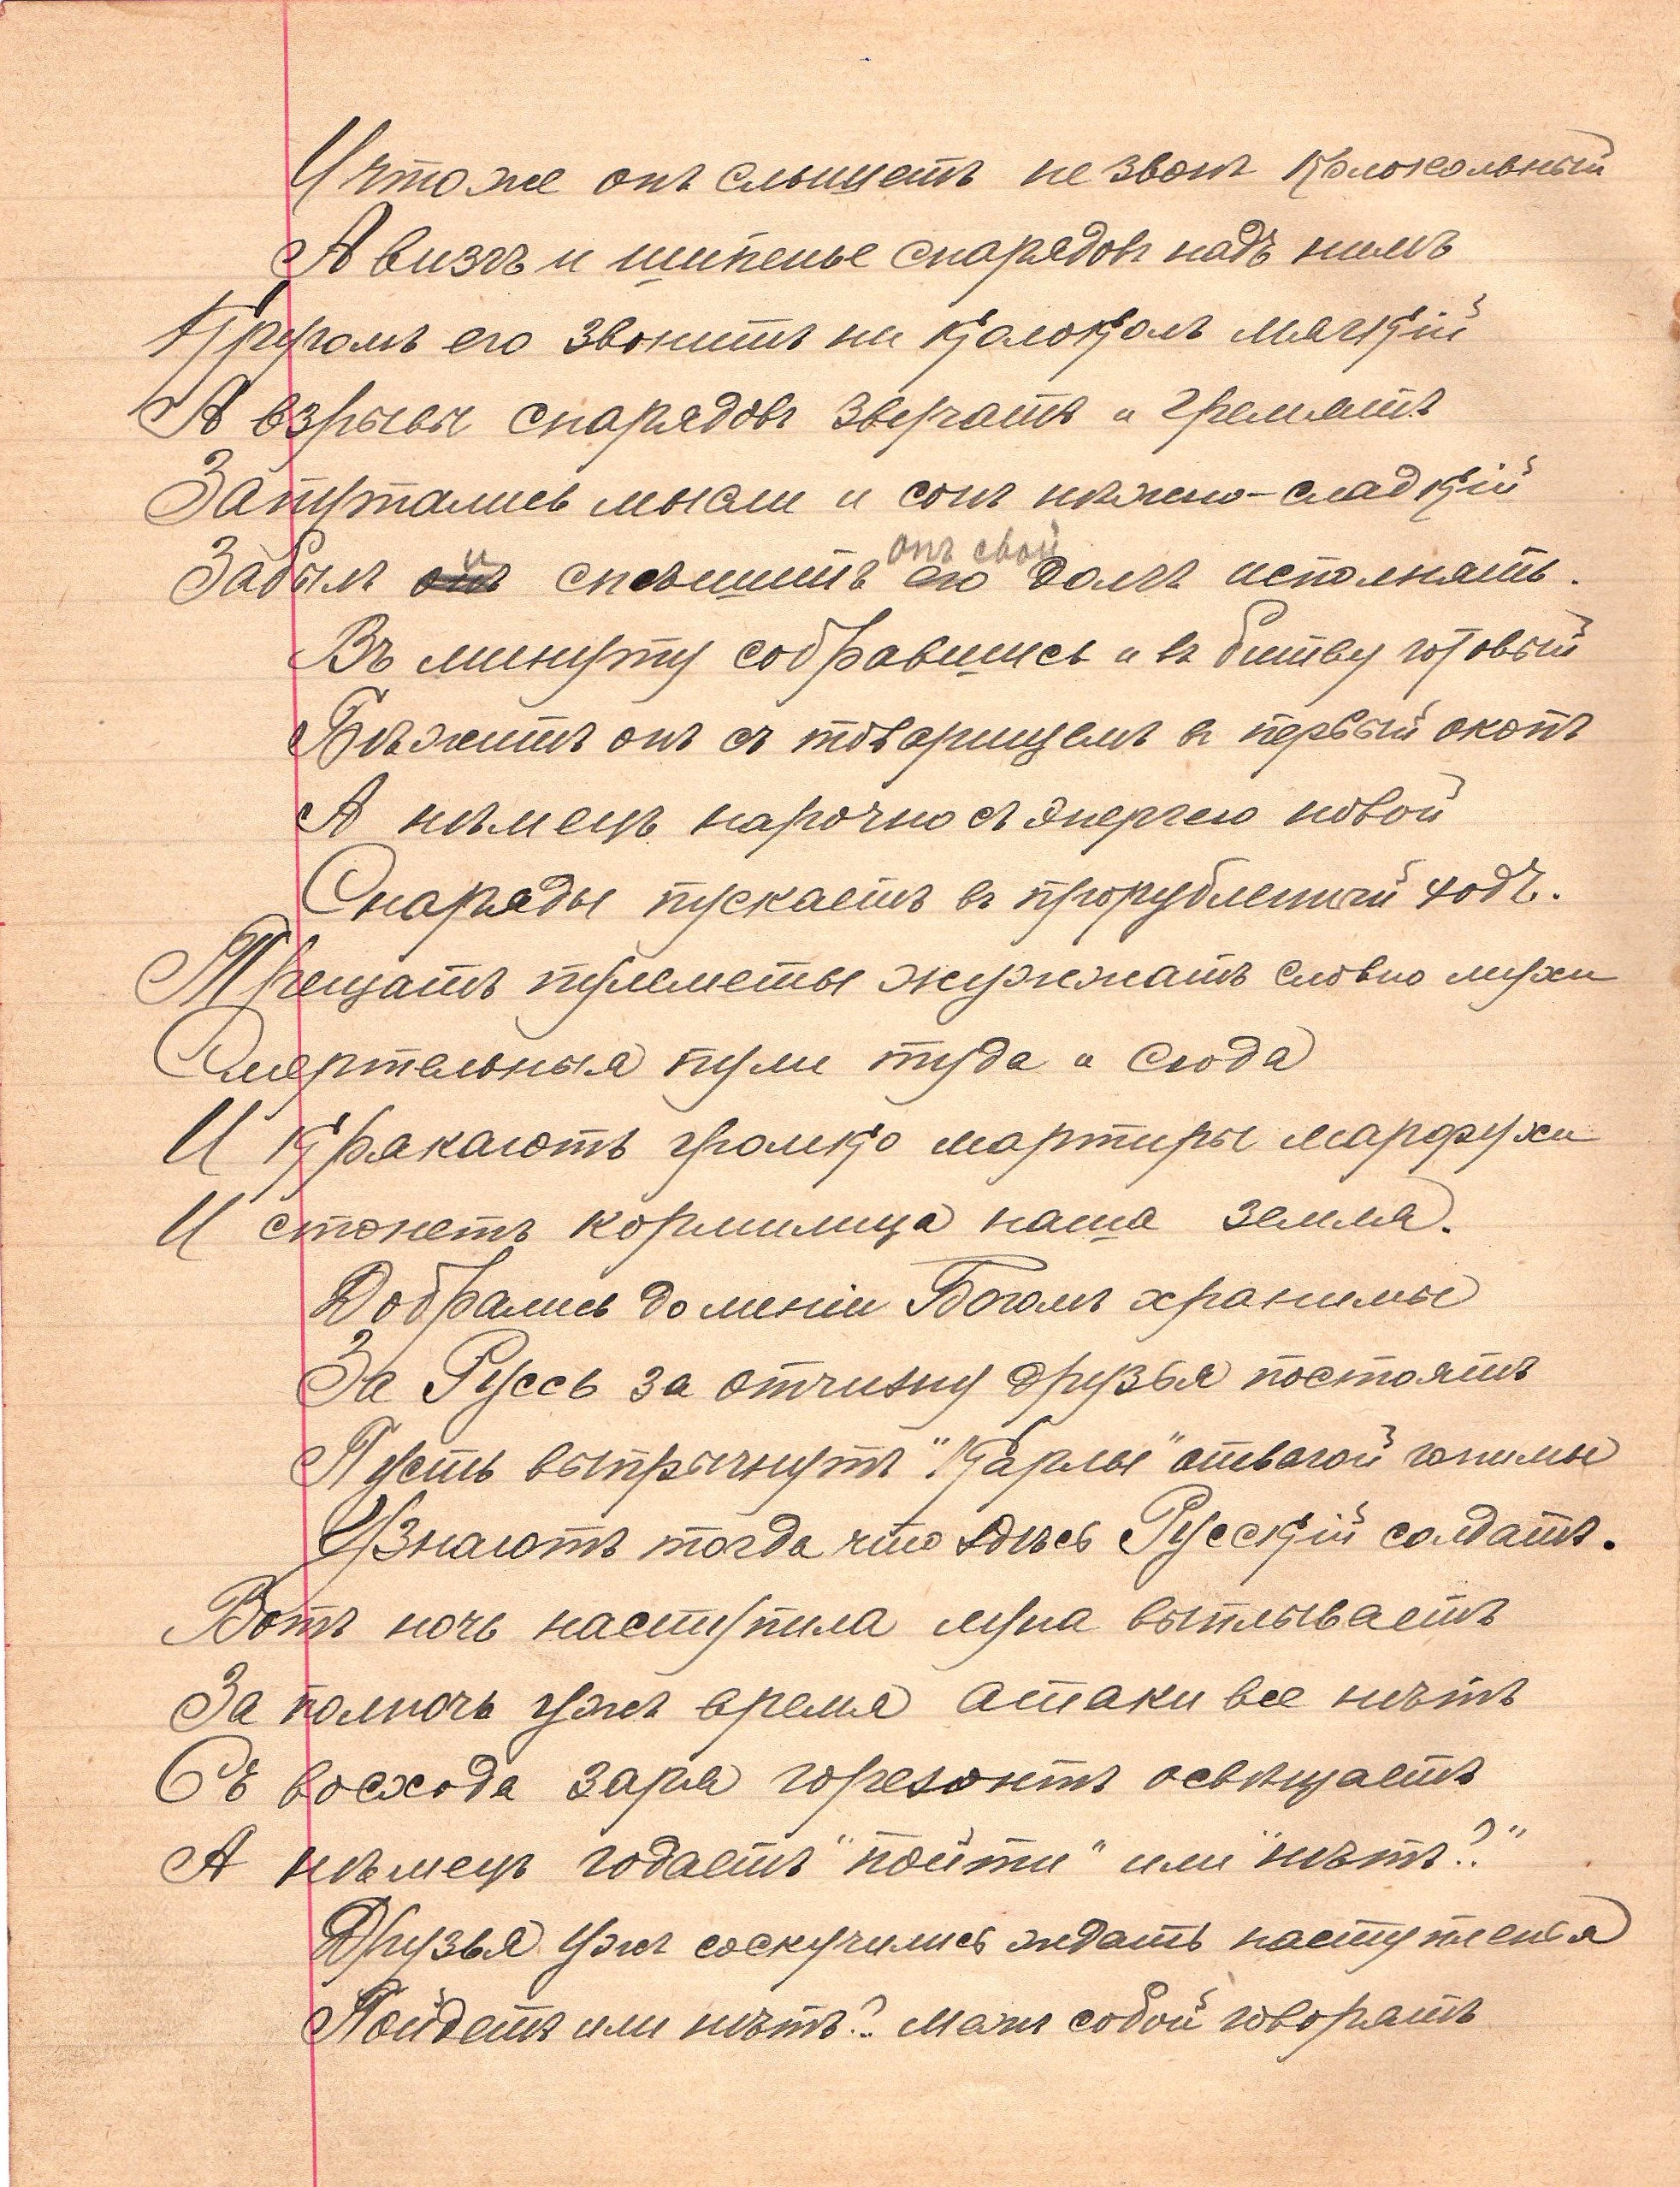 И чтоже онъ слышетъ не звонъ колокольный
А визгъ и шипенье снарядовъ надъ нимъ
Кругомъ его звонитъ ни колоколъ мягкій
А взрывы снарядовъ зверчатъ и гремятъ
Запутались мысли и сонъ нѣжно-сладкій
Забылъ и спѣшитъ онъ свой долгъ исполнять.
Въ минуту собравшись и въ битву готовый
Бѣжитъ онъ съ товарищемъ въ первый окопъ
А нѣмецъ нарочно съ энергею новой
Снаряды пускаетъ въ прорубленный ходъ.
Трещатъ пулеметы жужжатъ словно мухи
Смертельныя пули туда и сюда
И крякаютъ громко мортиры марфухи
И стонетъ кормилица наша земля.
Добрались до линіи Богомъ хранимы
За Руссь за отчизну друзья постоятъ
Пусть выпрыгнутъ "Карлы" отвагой гонимы
Узнаютъ тогда что здѣсь Русскій солдатъ.
Вотъ ночь наступила луна выплываетъ
За полночь ужъ время атаки все нѣтъ
Съ восхода заря горезонтъ освѣщаетъ
А нѣмецъ годаетъ "пойти" или "нѣтъ?"
Друзья ужъ соскучились ждать наступленья
Пойдетъ или нѣтъ? межъ собой говорятъ